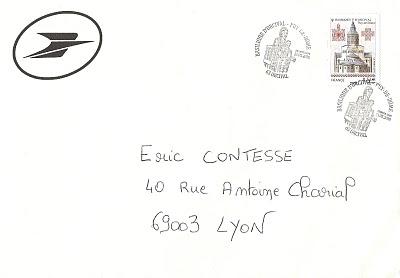 BASILIQUE D'ORCIVAL - PUY-DE-DÔME
63 ORCIVAL
FRANCE
BASILIQUE D'ORCIVAL - PUY-DE-DÔME
63 ORCIVAL
Eric CONTESSE
40 Rue Antoine Charial
69003 LYON